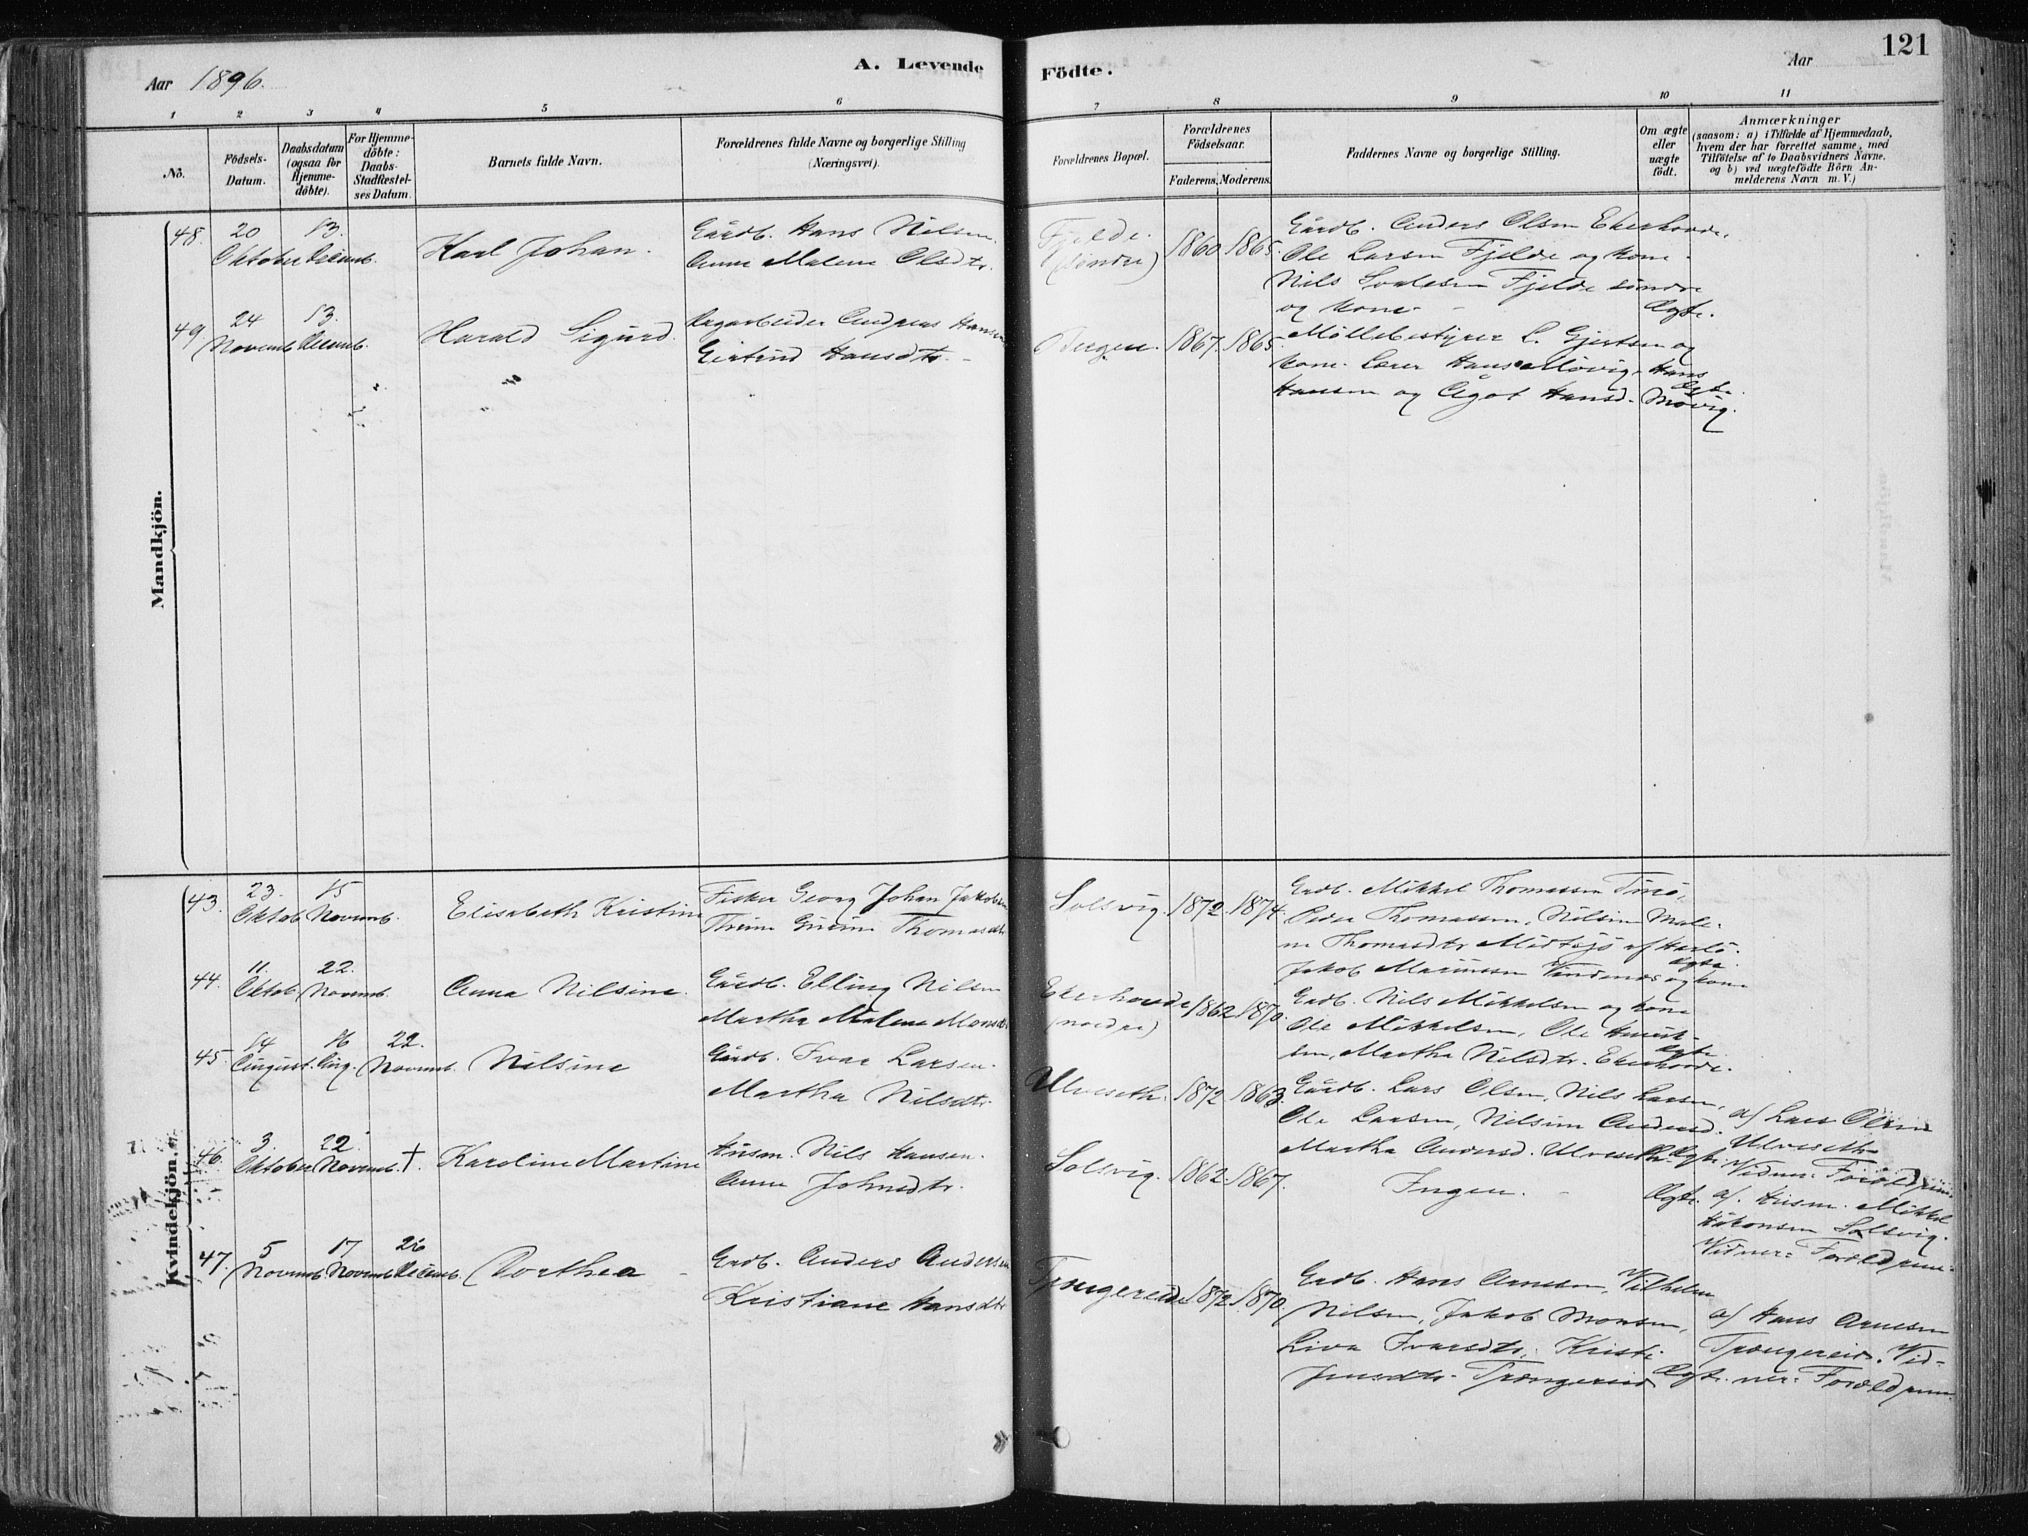 121
A. Levende Födte.
Aar 1896.
Aar
1 2 3 4 5 6 7 8 9 10 11
No.
Födsels-Datum.
Daabsdatum (ogsaa for Hjemme-döbte).
For Hjemme-döbte: Daabs-Stadfæstel-ses Datum.
Barnets fulde Navn.
Forældrenes fulde Navne og borgerlige Stilling (Næringsvei).
Forældrenes Bopæl.
Forældrenes Födselsaar.
Faderens. Moderens.
Faddernes Navne og borgerlige Stilling.
Om ægte eller uægte födt.
Anmærkninger
(saasom: a) i Tilfælde af Hjemmedaab,
hvem der har forrettet samme, med
Tilföielse af to Daabsvidners Navne,
og b) ved uægtefödte Börn An-
melderens Navn m. V.)
Mandkjön.
48. 20 Oktober 13. Decemb. Karl Johan. Gårdb. Hans Nilsen. Anna Malene Olsdtr. Fjelde (söndre) 1860 1865.
Gårdb. Anders Olsen Ekerhovde,
Ole Larsen Fjelde og Kone.
Nils Fjelde söndre
og Kone. Ægte.
49. 24 Novemb. 13. Decemb. Harald Sigurd. Andreas Hansen Gertrud Hansdtr. Bergen. 1867. 1865.
Möllebestyrer L. Gjertsen og
Kone. Lærer Hans Mövig. Hans
Hansen og Ågot Hansd. Mövig. Ægte.
Kvindekjön.
43. 23. Oktob. 15 Novemb. Elisabeth Kristine Fisker Georg Johan Jakobsen Thomasdtr Solsvig. 1872. 1874.
Grdb. Mikkel Thomassen
Peder Thomassen, Nilsine Male-
ne Thomasdtr af
Jakob og Kone Ægte.
44. 11. Oktob. 22. Novemb. Anna Nilsine. Gårdb. Elling Nilsen Martha Malene Monsdtr Ekerhovde (nordre) 1862. 1870.
Grdb. Nils Mikkelsen og Kone
Ole Mikkelsen, Ole
sen, Martha Nilsdtr. Ekerhovde. Ægte.
45. 14 August. 16 Aug. 22. Novemb. Nilsine Gårdb. Ivar Larsen. Martha Nilsdtr. Ulveseth. 1872 1863.
Gårdb. Lars Olsen, Nils Larsen,
Ole Larsen, Nilsine Andersd.
Martha Andersd. Ulveseth. Ægte.
a) Lars Olsen
Ulveseth.
Vidner: Forældrene.
46. 3. Oktober 22. Novemb. †. Karoline Martine Husm. Nils Hansen. Anna Johnsdtr. Solsvig. 1862. 1867. Ingen. Ægte.
a). Husm. Mikkel
Håkonsen Solsvig.
Vidner: Forældrene.
47. 5 Novemb. 17 Novemb. 26 Decemb. Dorthea Grdb. Anders Andersen Kristiane Hansdtr Trængereid 1872. 1870.
Grdb. Hans Arnesen, Vilhelm
Nilsen, Jakob Monsen,
Liva Ivarsdtr., Kristi
Jensdtr. Trængereid Ægte.
a) Hans Arnesen
Trængereid. Vid-
ner: Forældrene.